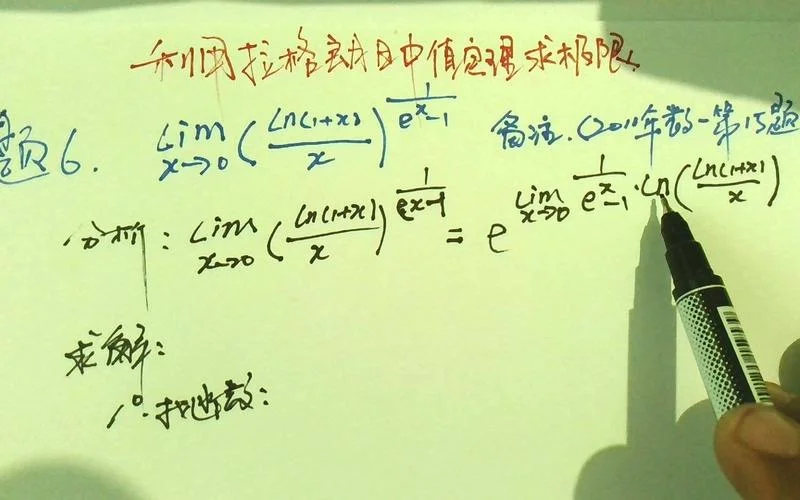 利用拉格朗日中值定理求极限.
题6. lim x→0 (ln(1+x)/x)^(1/(e^x-1)) 备注.(2011年数一第15题
分析: lim x→0 (ln(1+x)/x)^(1/(e^x-1)) = e^(lim x→0 1/(e^x-1)·ln(ln(1+x)/x))
求解:
1°.找函数: